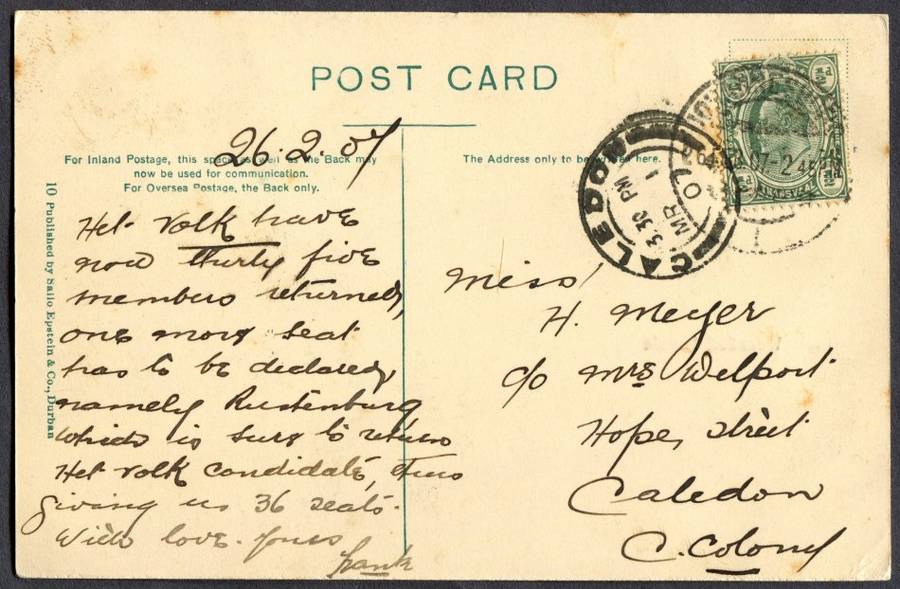 POST CARD
26.2.07
For Inland Postage, this space as well as the Back may
now be used for communication.
For Oversea Postage, the Back only.
The Address only to be written here.
10 Published by Sallo Epstein & Co., Durban
Het Volk have
now thirty five
members returned,
one more seat
has to be declared,
namely Rustenburg
which is sure to return
Het Volk candidate, thus
giving us 36 seats.
With love. Yours
Frank
CALEDON
3.30 PM
MR 1
07
07-2 45PM
TRANSVAAL
Miss
H. Meyer
c/o Mrs Welport
Hope, street
Caledon
C. Colony